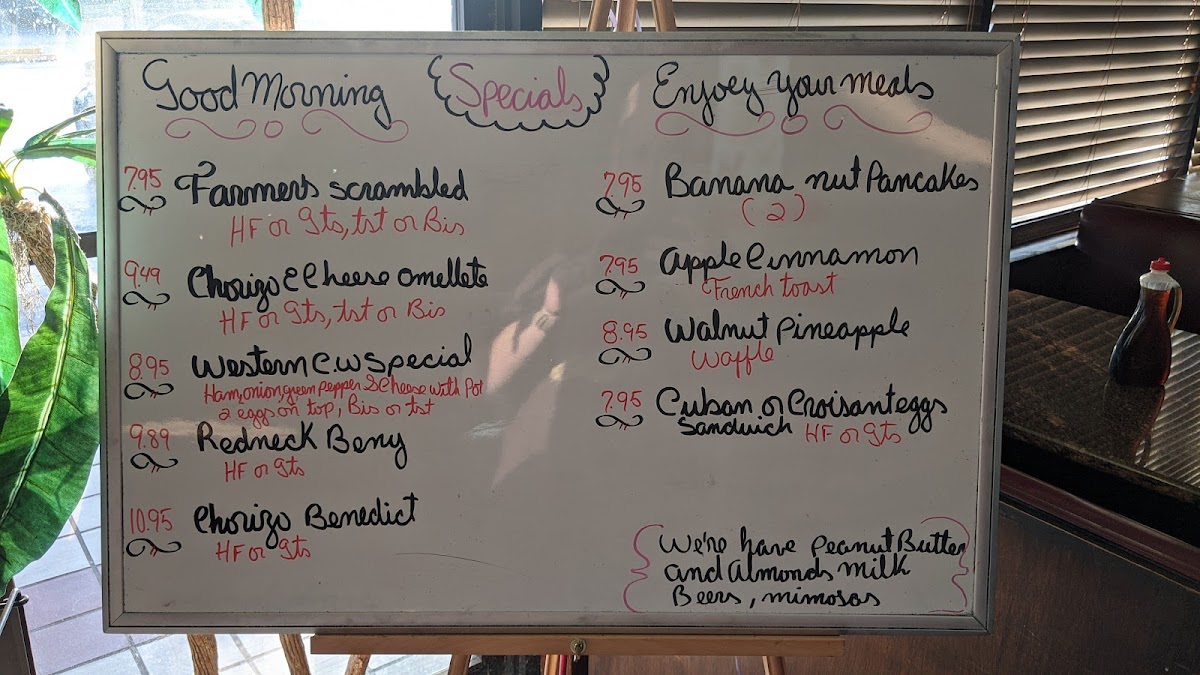 Good Morning
Specials
Enjoey your meals
7.95 Farmer's scrambled
HF or gts, tst or Bis
9.49 Chorizo & Cheese omellete
HF or gts, tst or Bis
8.95 Western C.W Special
Ham, onion, green pepper & Cheese with Pot
2 eggs on top, Bis or tst
9.89 Redneck Beny
HF or gts
10.95 Chorizo Benedict
HF or gts
7.95 Banana nut Pancakes
(2)
7.95 Apple Cinnamon
French toast
8.95 Walnut pineapple
Waffle
7.95 Cuban or Croisant eggs
Sandwich HF or gts
We're have peanut Butter
and Almonds milk
Beers, mimosas